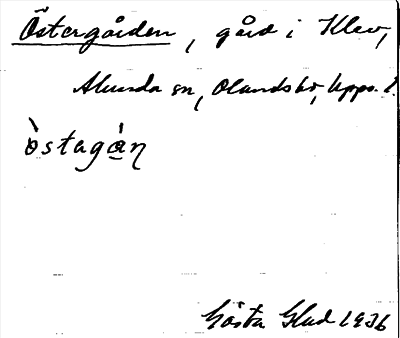 Östergården, gård i Klev,
Alunda sn, Olands hd, Upps. l.
òstagàn
Gösta Glad 1936